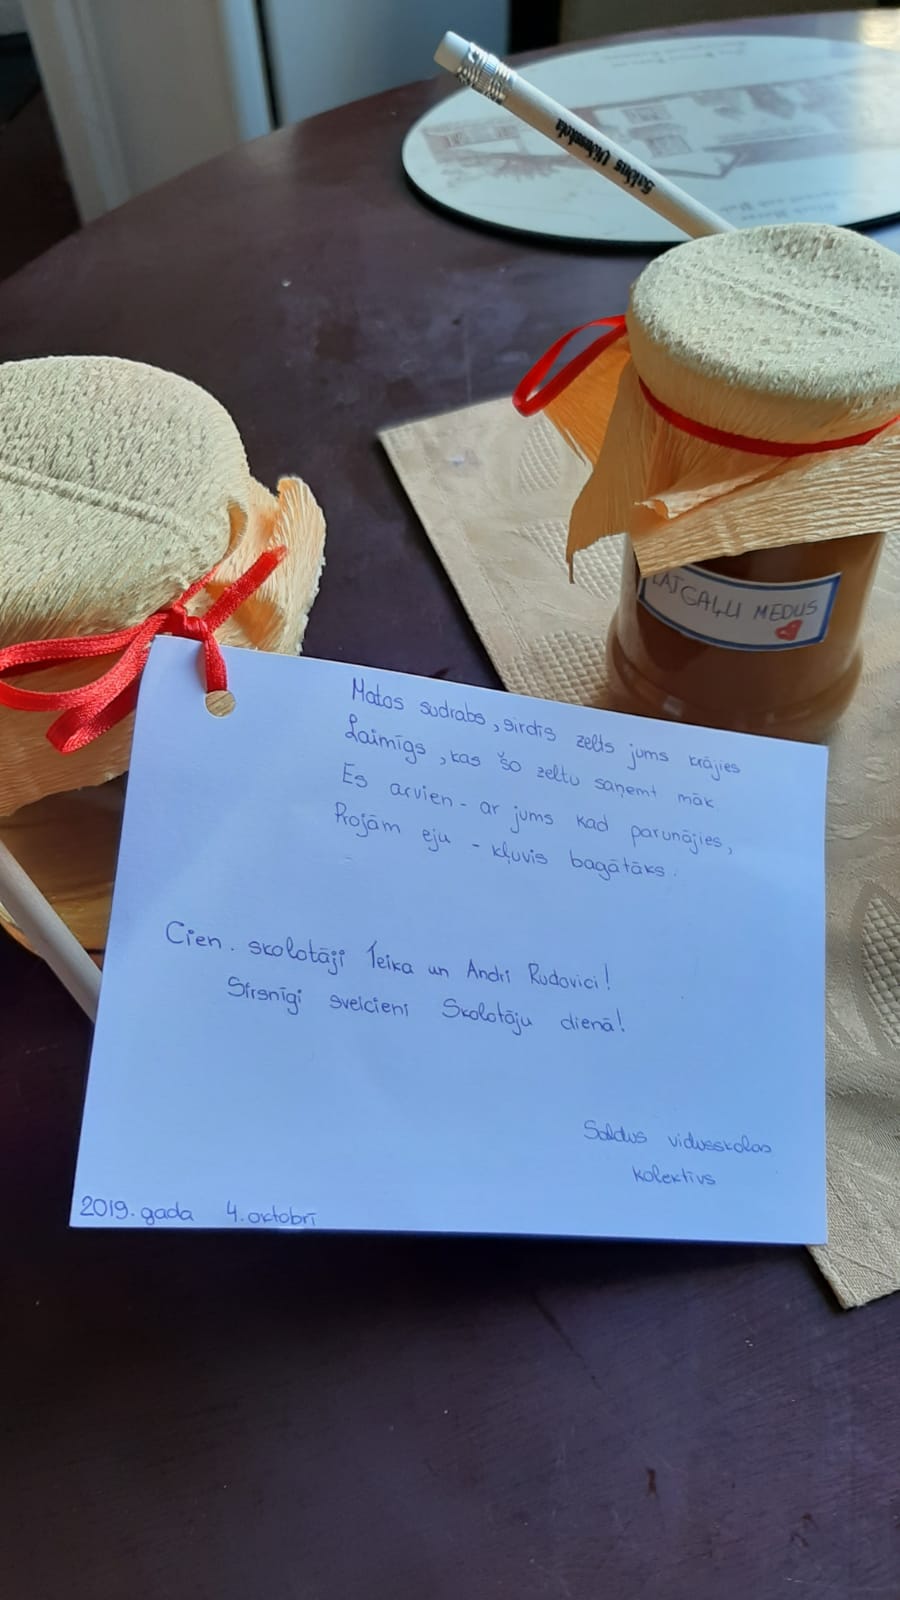 Saldus Vidusskola
LATGAĻU MEDUS
Matos sudrabs, sirdīs zelts jums krājies
Laimīgs, kas šo zeltu saņemt māk
Es arvien - ar jums kad parunājies,
Projām eju - kļuvis bagātāks.
Cien. skolotāji Teika un Andri Rudovici!
Sirsnīgi sveicieni Skolotāju dienā!
Saldus vidusskolas
kolektīvs
2019. gada 4. oktobrī